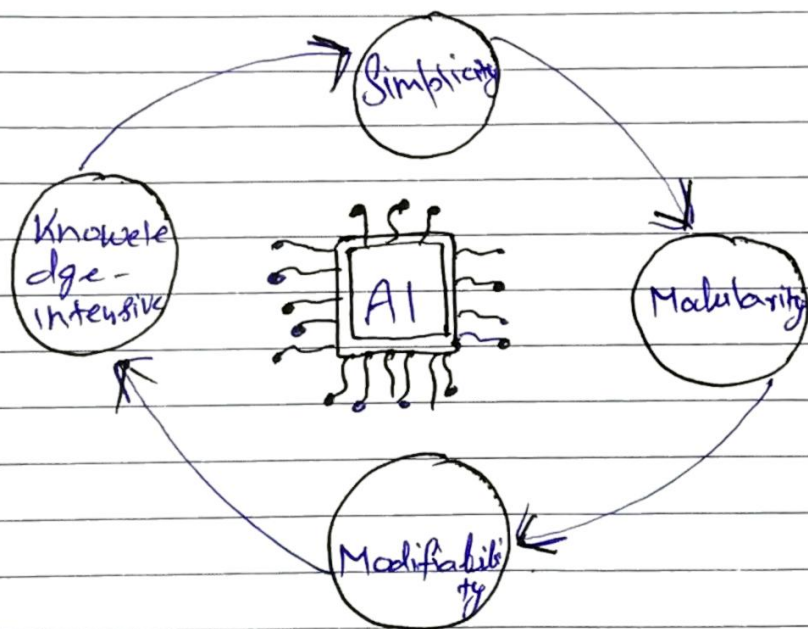 Simplicity
Knowele
dge-
intensive
AI
Modularity
Modifiabili
ty